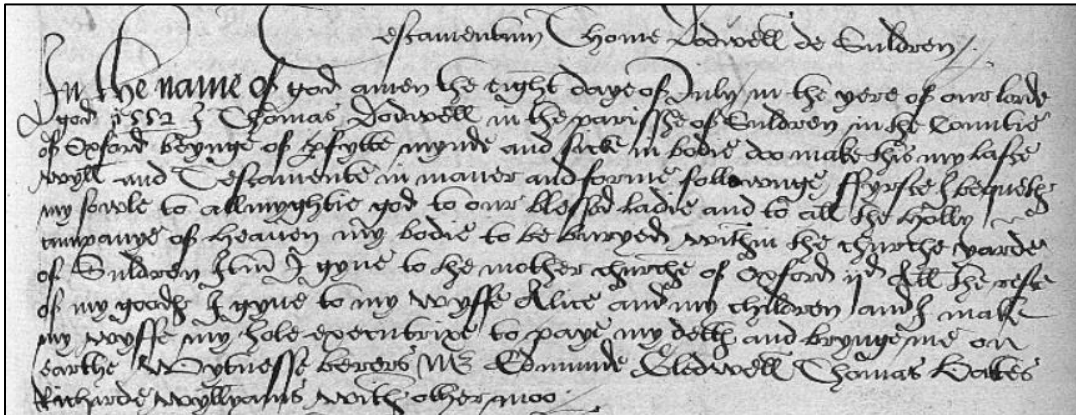 Testamentum Thome Dodwell de Suldren
In the name of god amen the eight daye of July in the yere of our lorde
god 1552 I Thomas Dodwell in the parisshe of Suldren in the Countie
of Oxford beynge of pfytte mynde and sicke in bodie doo make this my laste
wyll and Testamente in maner and forme followinge ffyrste I bequeth
my sowle to allmyghtie god to our blessed ladie and to all the holly
cumpanye of heaven my bodie to be buryed within the churche yarde
of Suldren Itm I gyve to the mother churche of Oxford ijd All the reste
of my goods I gyve to my wyffe Alice and my children and I make
my wyffe my hole executrixe to paye my detts and brynge me on
earthe Wytnesse berers Mr Edmunde Thomas
Richarde Wyllyams with other moo